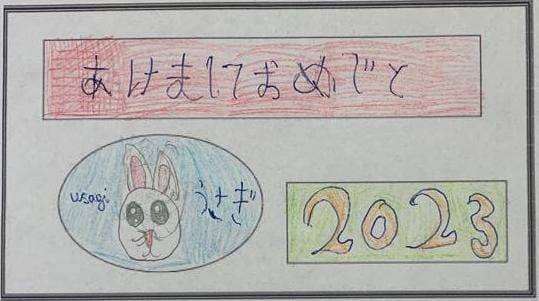 あけましておめでと
usagi うさぎ
2023